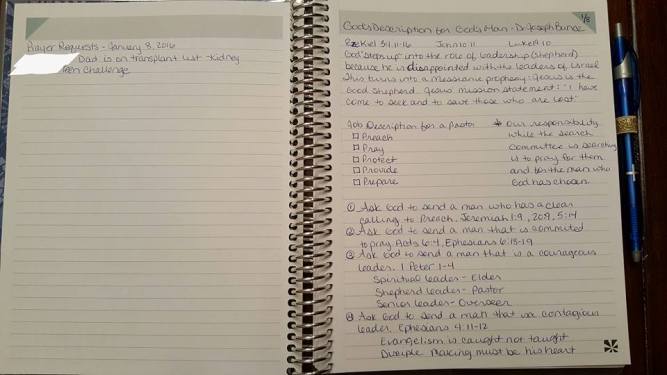 Prayer Requests - January 8, 2016
Dad is on transplant list - kidney
Teen Challenge
1/8
God's Description for God's Man - Dr. Joseph
Ezekiel 34:11-16 John 10:11 Luke 19:10
God "steps up" into the role of leadership (shepherd)
because he is disappointed with the leaders of Israel
This turns into a Messianic prophemy: Jesus is the
Good Shepherd. Jesus' mission statement: "I have
come to seek and to save those who are lost"
Job Description for a Pastor
Preach
Pray
Protect
Provide
Prepare
Our responsibility
while the search
committee is searching
is to pray for them
and for the man who
God has chosen.
① Ask God to send a man who has a clear
calling to Preach. Jeremiah 1:9, 20:9, 5:14
② Ask God to send a man that is commited
to pray. Acts 6:4, Ephesians 6:18-19
③ Ask God to send a man that is a courageous
leader. 1 Peter 1-4
Spiritual leader - Elder
Shepherd leader - Pastor
Senior leader - Overseer
④ Ask God to send a man that is a contagious
leader. Ephesians 4:11-12
Evangelism is caught not taught
Disciple making must be his heart